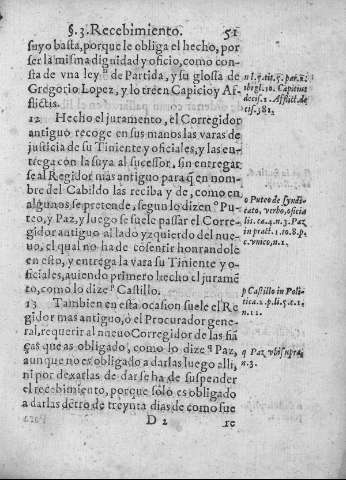 §. 3. Recebimiento. 51
suyo basta, porque le obliga el hecho, por
ser la misma dignidad y oficio, como con-
sta de vna ley ⁿ de Partida, y su glossa de
Gregorio Lopez, y lo trēen Capicio y Af-
flictis.
12 Hecho el juramento, el Corregidor
antiguo recoge en sus manos las varas de
justicia de su Tiniente y oficiales, y las en-
trega con la suya al sucessor, sin entregar
se al Regidor mas antiguo para q̃ en nom-
bre del Cabildo las reciba y de, como en
algunos se pretende, segun lo dizen º Pu-
teo, y Paz, y luego se suele passar el Corre-
gidor antiguo al lado yzquierdo del nue-
uo, el qual no ha de cōsentir honrandole
en esto, y entrega la vara su Tiniente y o-
ficiales, auiendo primero hecho el juramē
to, como lo dize ᵖ Castillo.
13 Tambien en esta ocasion suele el Re
gidor mas antiguo, ó el Procurador gene-
ral, requerir al nueuo Corregidor de las fiā
ças que as obligado, como lo dize ᑫ Paz,
aunque no es obligado a darlas luego alli,
ni por dexarlas de dar se ha de suspender
el recebimiento, porque sólo es obligado
a darlas dētro de treynta dias de como fue
D 2 re
decis. 1. Afflict. de
cis. 382
o Puteo de syndi-
catu, verbo, oficia
lis. ca. 4. n. 3. Paz
in pract. 1. to. 8. p.
c. vnico, n. 1.
p Castillo in Poli-
tica. 2. p. li. 5. c. 1.
n. 12.
q Paz vbi supra
n. 3.